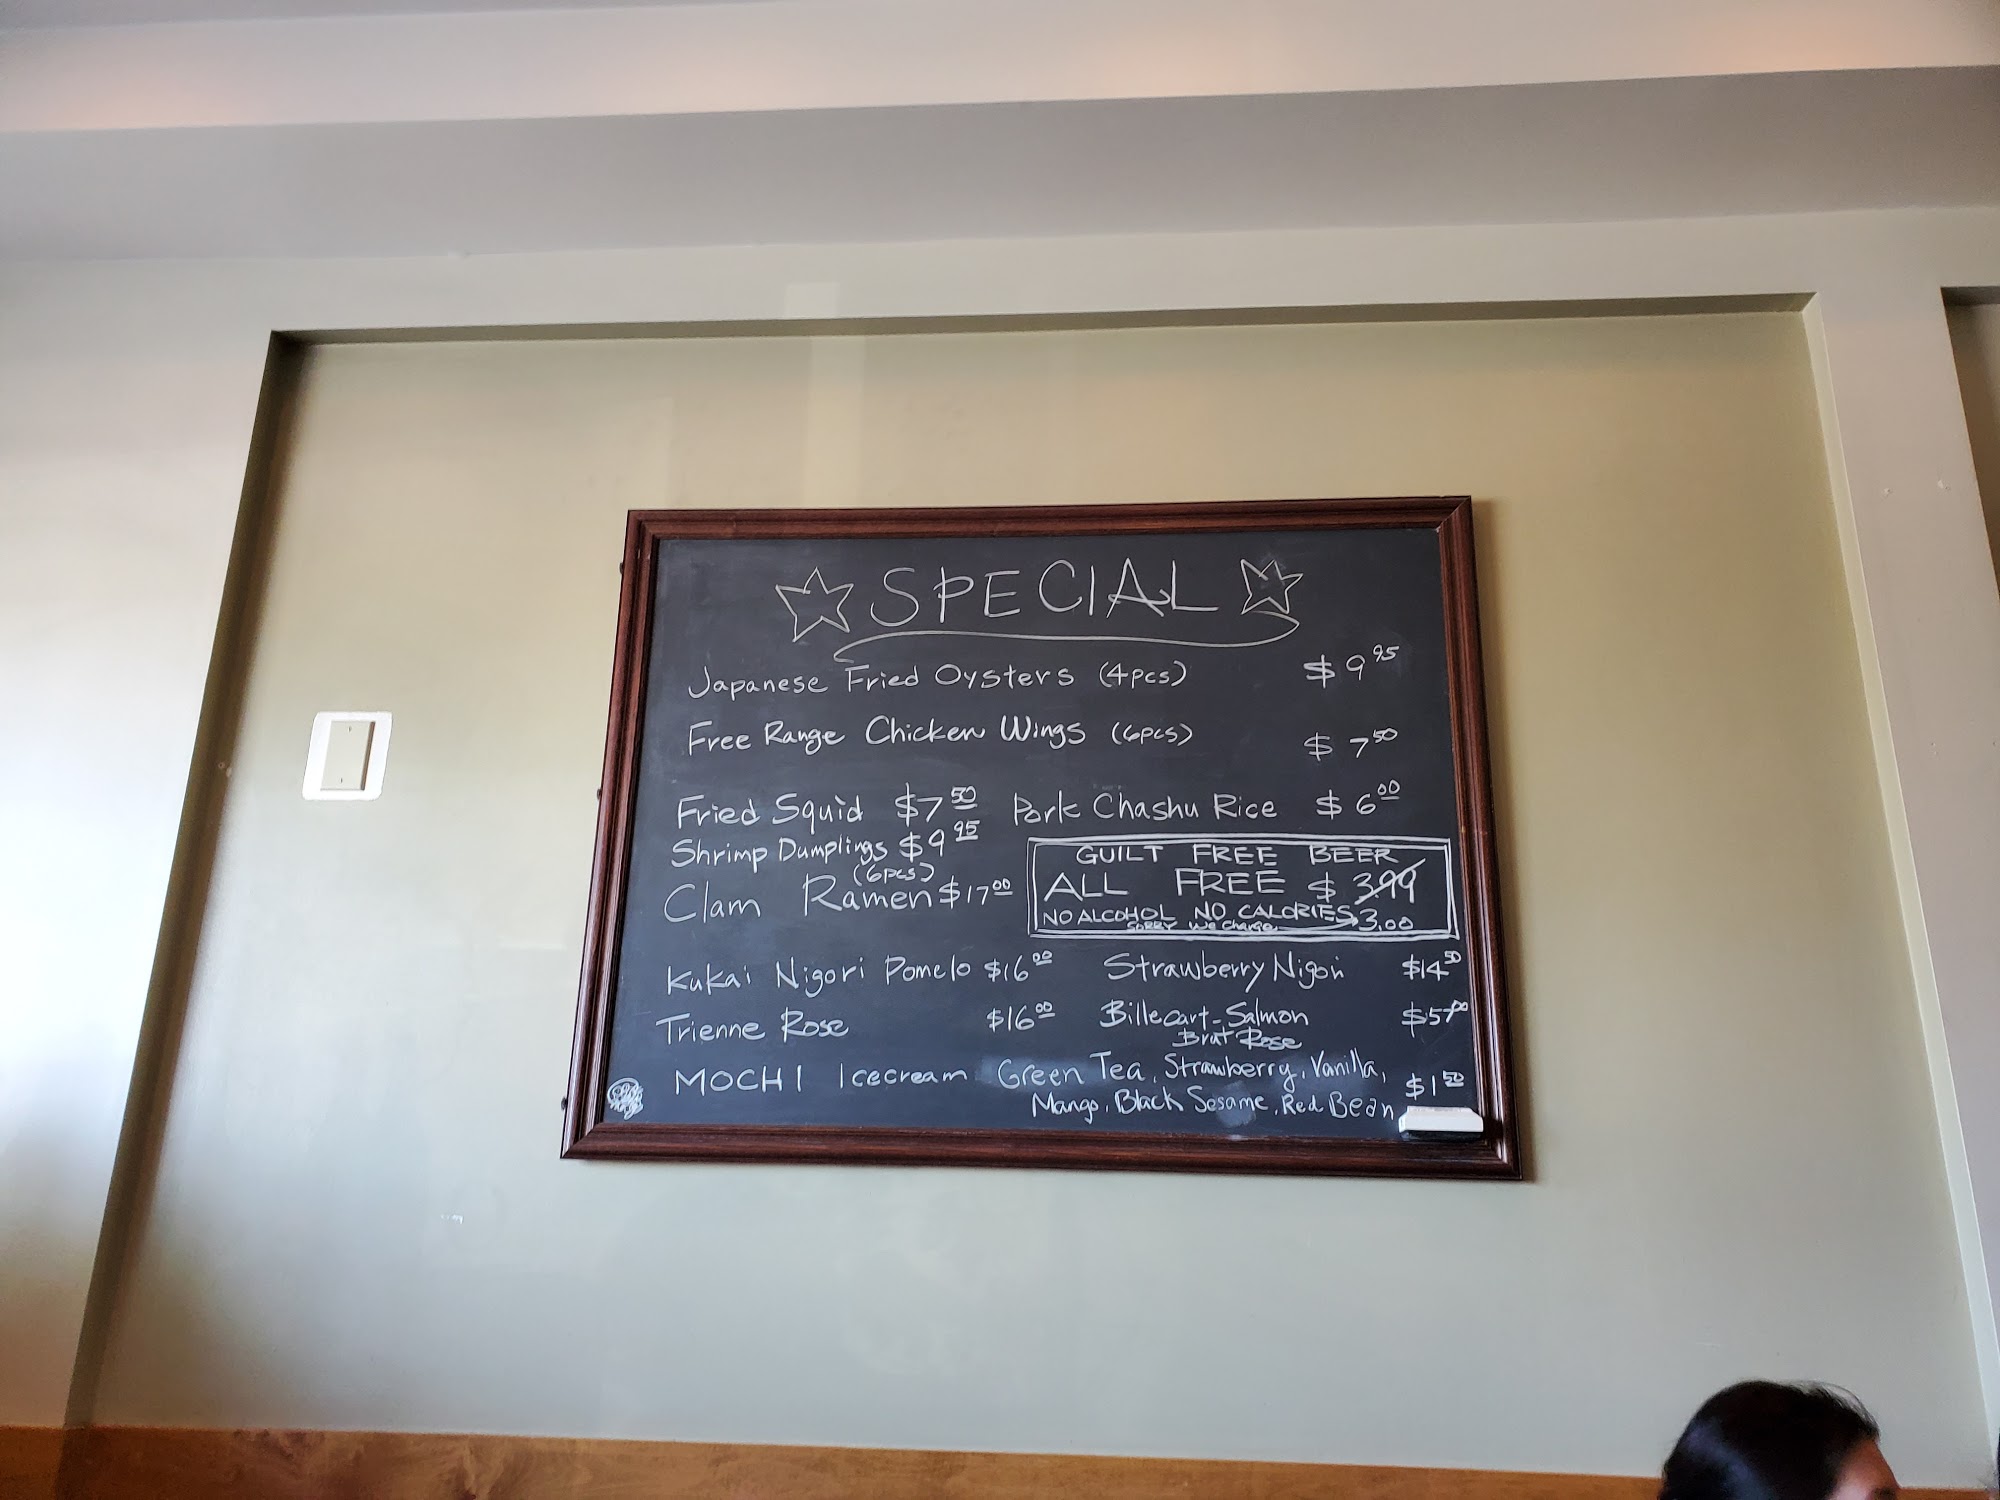 SPECIAL
Japanese Fried Oysters (4pcs) $9.95
Free Range Chicken Wings (6pcs) $7.50
Fried Squid $7.50 Pork Chashu Rice $6.00
Shrimp Dumplings $9.95
(6pcs)
Clam Ramen $17.00
GUILT FREE BEER
ALL FREE $3.99
NO ALCOHOL NO CALORIES
SORRY We Charge 3.00
Kukai Nigori Pomelo $16.00 Strawberry Nigori $14.50
Trienne Rose $16.00 Billecart-Salmon $57.00
Brut Rose
MOCHI Icecream Green Tea, Strawberry, Vanilla,
Mango, Black Sesame, Red Bean $1.50